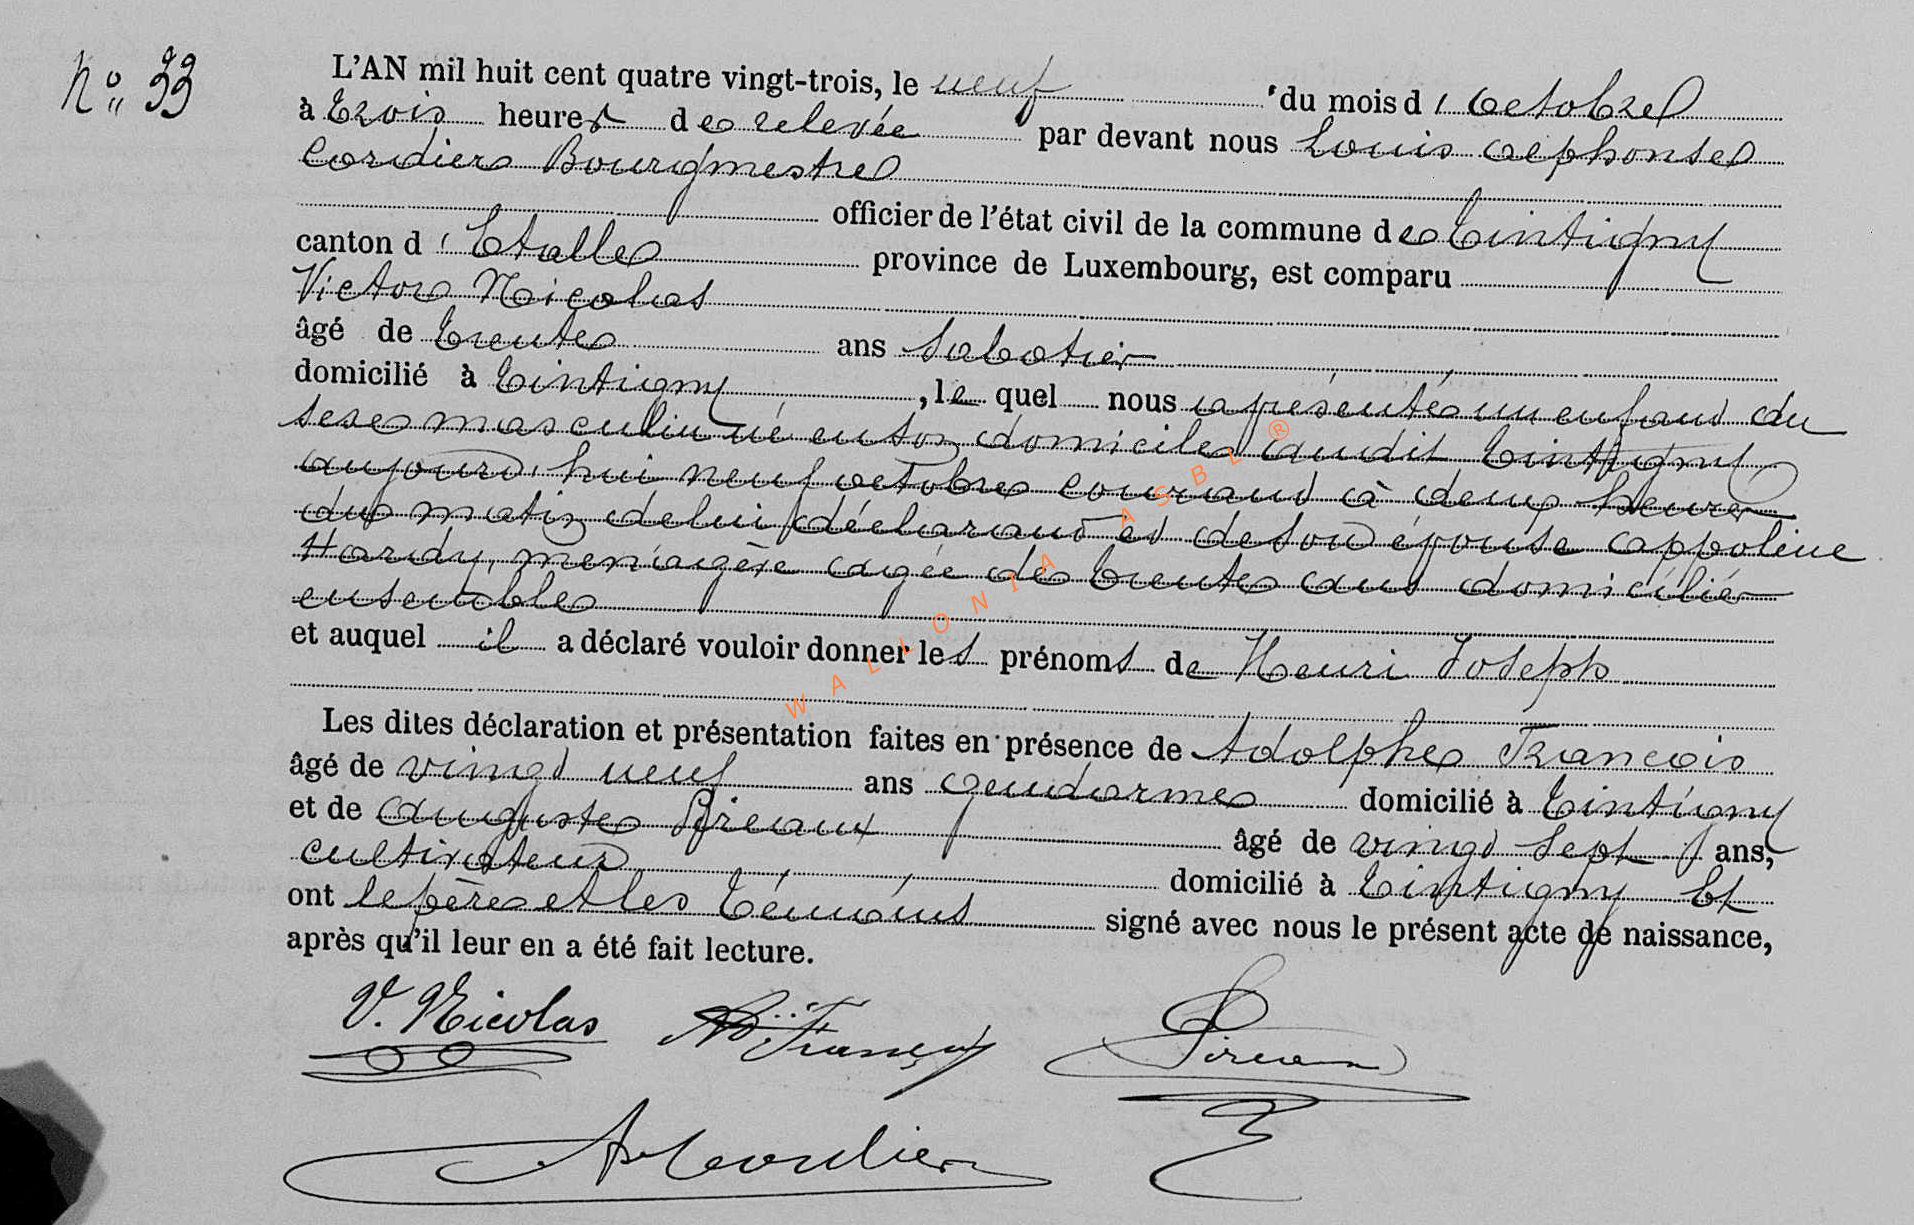 N° 33
L'AN mil huit cent quatre vingt-trois, le neuf du mois d'octobre
à trois heures de relevée par devant nous Louis Alphonse
Cordier Bourgmestre
officier de l'état civil de la commune de Tintigny
canton d'Etalle province de Luxembourg, est comparu
Victor Nicolas
âgé de trente ans sabotier
domicilié à Tintigny, lequel nous a présenté un enfant du
sexe masculin né en son domicile audit Tintigny
aujourd'hui neuf octobre courant à deux heures
du matin de lui déclarant et de son épouse Appoline
Hardy, menagère agée de trente ans domiciliés
ensemble
et auquel il a déclaré vouloir donner les prénoms de Henri Joseph
Les dites déclaration et présentation faites en présence de Adolphe Francois
âgé de vingt neuf ans gendarme domicilié à Tintigny
et de Auguste Pireaux âgé de vingt sept ans,
cultivateur domicilié à Tintigny Et
ont le père et les témoins signé avec nous le présent acte de naissance,
après qu'il leur en a été fait lecture.
V. Nicolas Ad François
A Cordier
WALLONIA ASBL ®